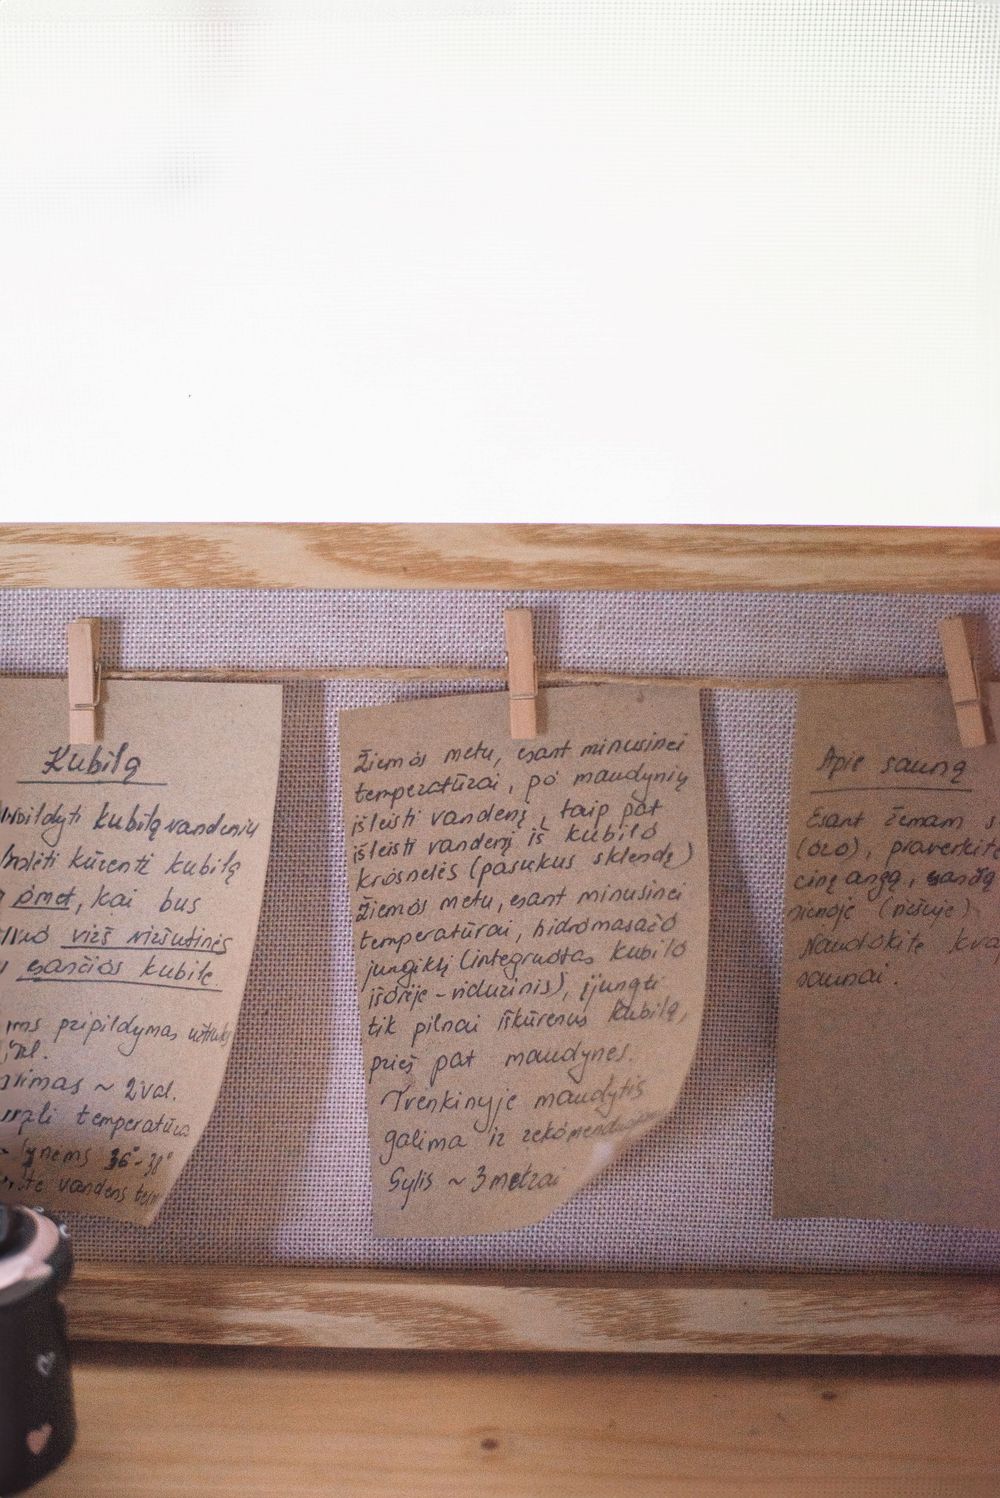 Kubilą
kubilą vandeniu
kūrenti kubilą
omet, kai bus
virš viršutinės
esančios kubile
pripildymas
~ 2 val.
temperatūra
36°-38°
vandens
Žiemos metu, esant minusinei
temperatūrai, po maudynių
išleisti vandenį, taip pat
išleisti vandenį iš kubilo
krosnelės (pasukus sklendę)
Žiemos metu, esant minusinei
temperatūrai, hidromasažo
jungiklį (integruotas kubilo
išorėje - vidurinis), įjungti
tik pilnai iškūrenus kubilą,
prieš pat maudynes.
Tvenkinyje maudytis
galima ir
Gylis ~ 3 metrai
Apie sauną
Esant žemam s
(oro), praverkite
cinę angą, esančią
sienoje (viršuje)
Naudokite kva
saunai.